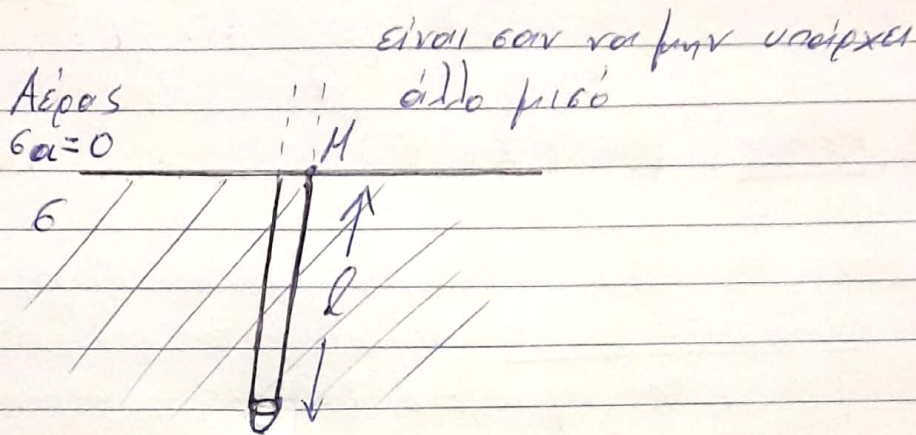 είναι σαν να μην υπάρχει
άλλο μισό
Αέρας
σα=0
M
σ
l